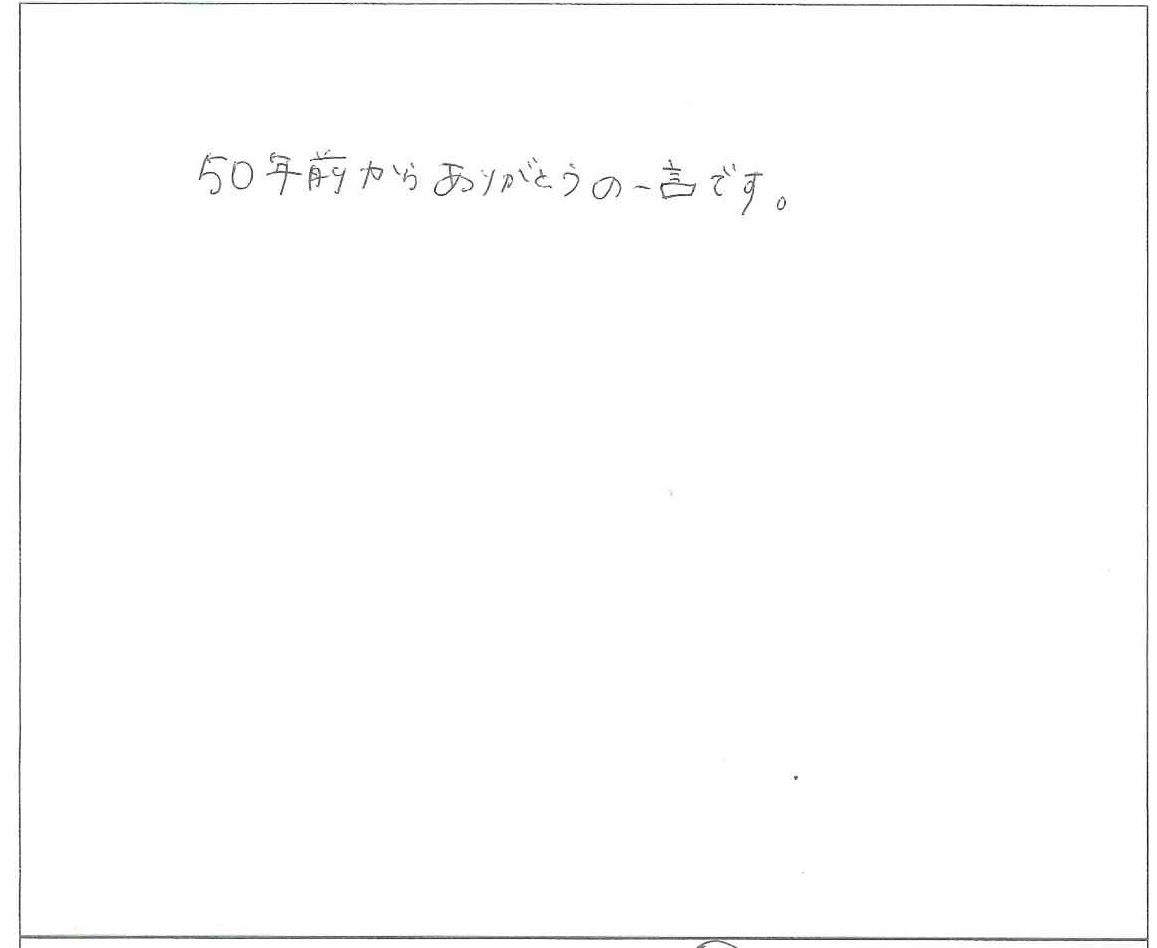 50年前からありがとうの一言です。